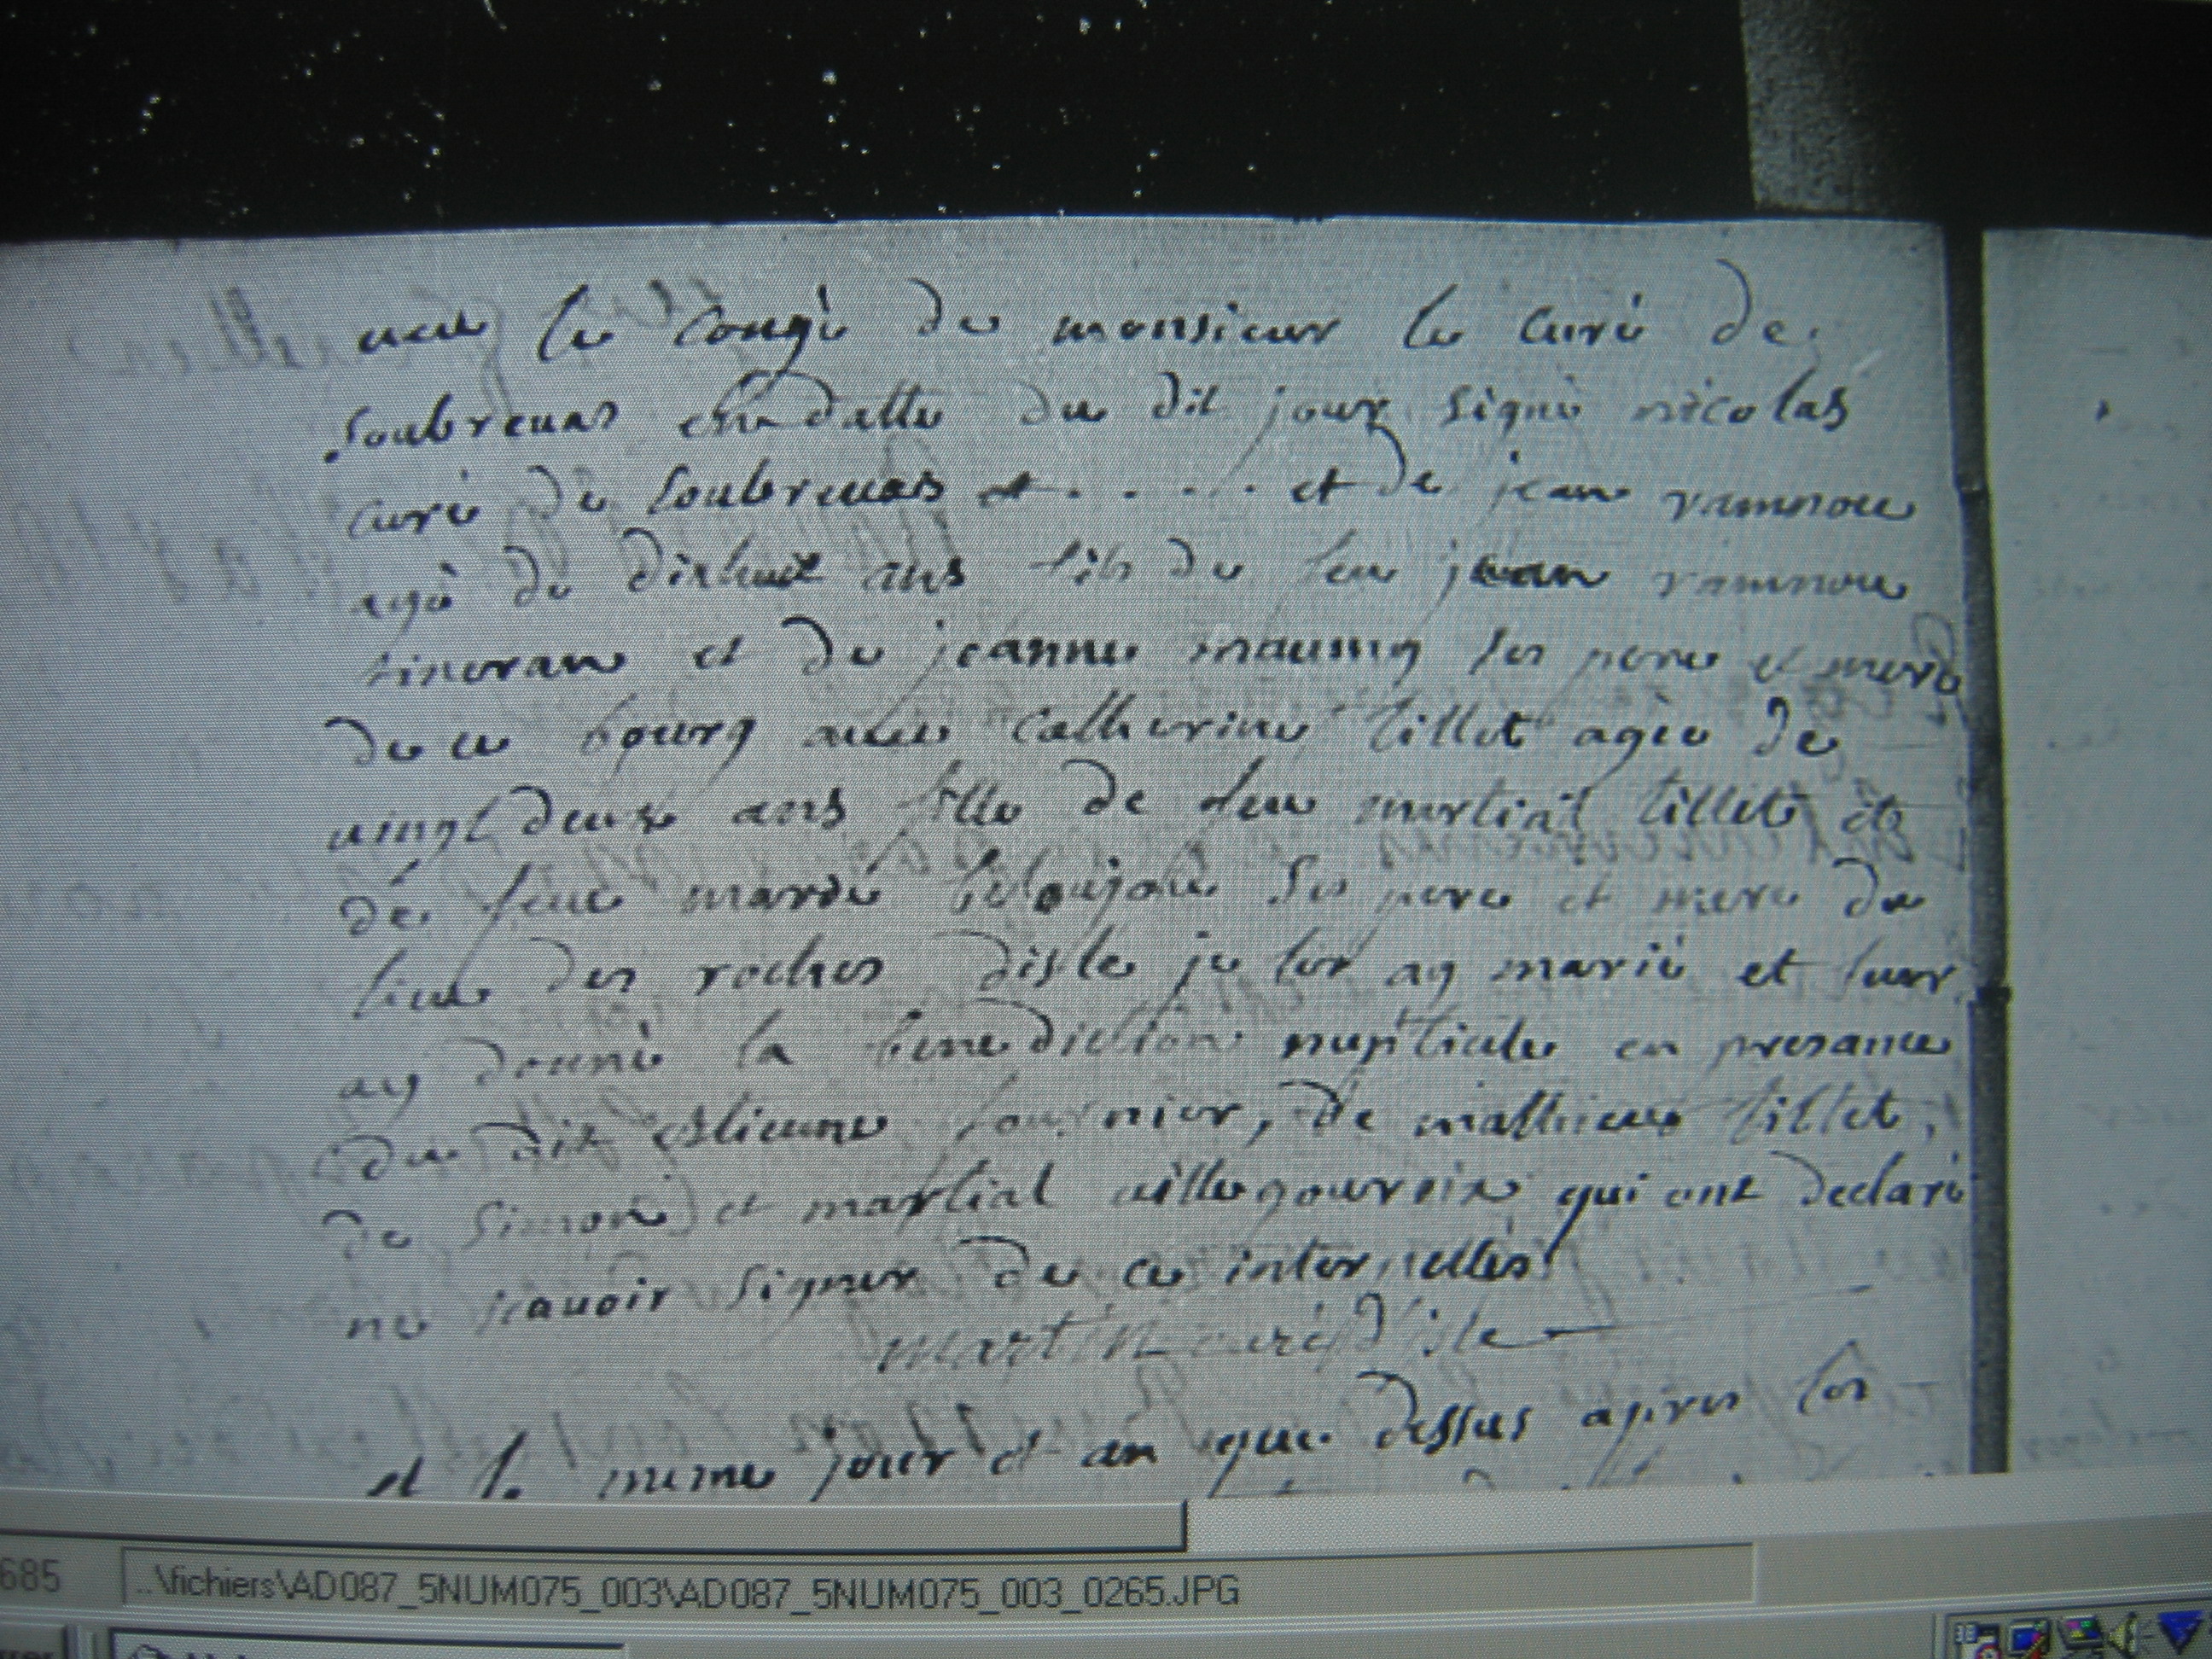 avec le congé de monsieur le curé de
soubrevas en datte du dit jour signé nicolas
curé de soubrevas et . . . . et de jean ramnoux
agé de dixhuit ans fils de feu jean ramnoux
et de jeanne maumy ses pere et mere
de ce bourg avec catherine tillet agée de
vingt deux ans fille de feu martial tillet et
de feue marie ses pere et mere du
lieu des roches disle je les ay marié et leur
ay donné la benediction nuptiale en presance
du dit estienne fournier, de mathieu tillet,
de simon et martial villegoureix qui ont declaré
ne scavoir signer de ce interpellés
martin curé d'isle
et le meme jour et an que dessus apres les
685
..\fichiers\AD087_5NUM075_003\AD087_5NUM075_003_0265.JPG